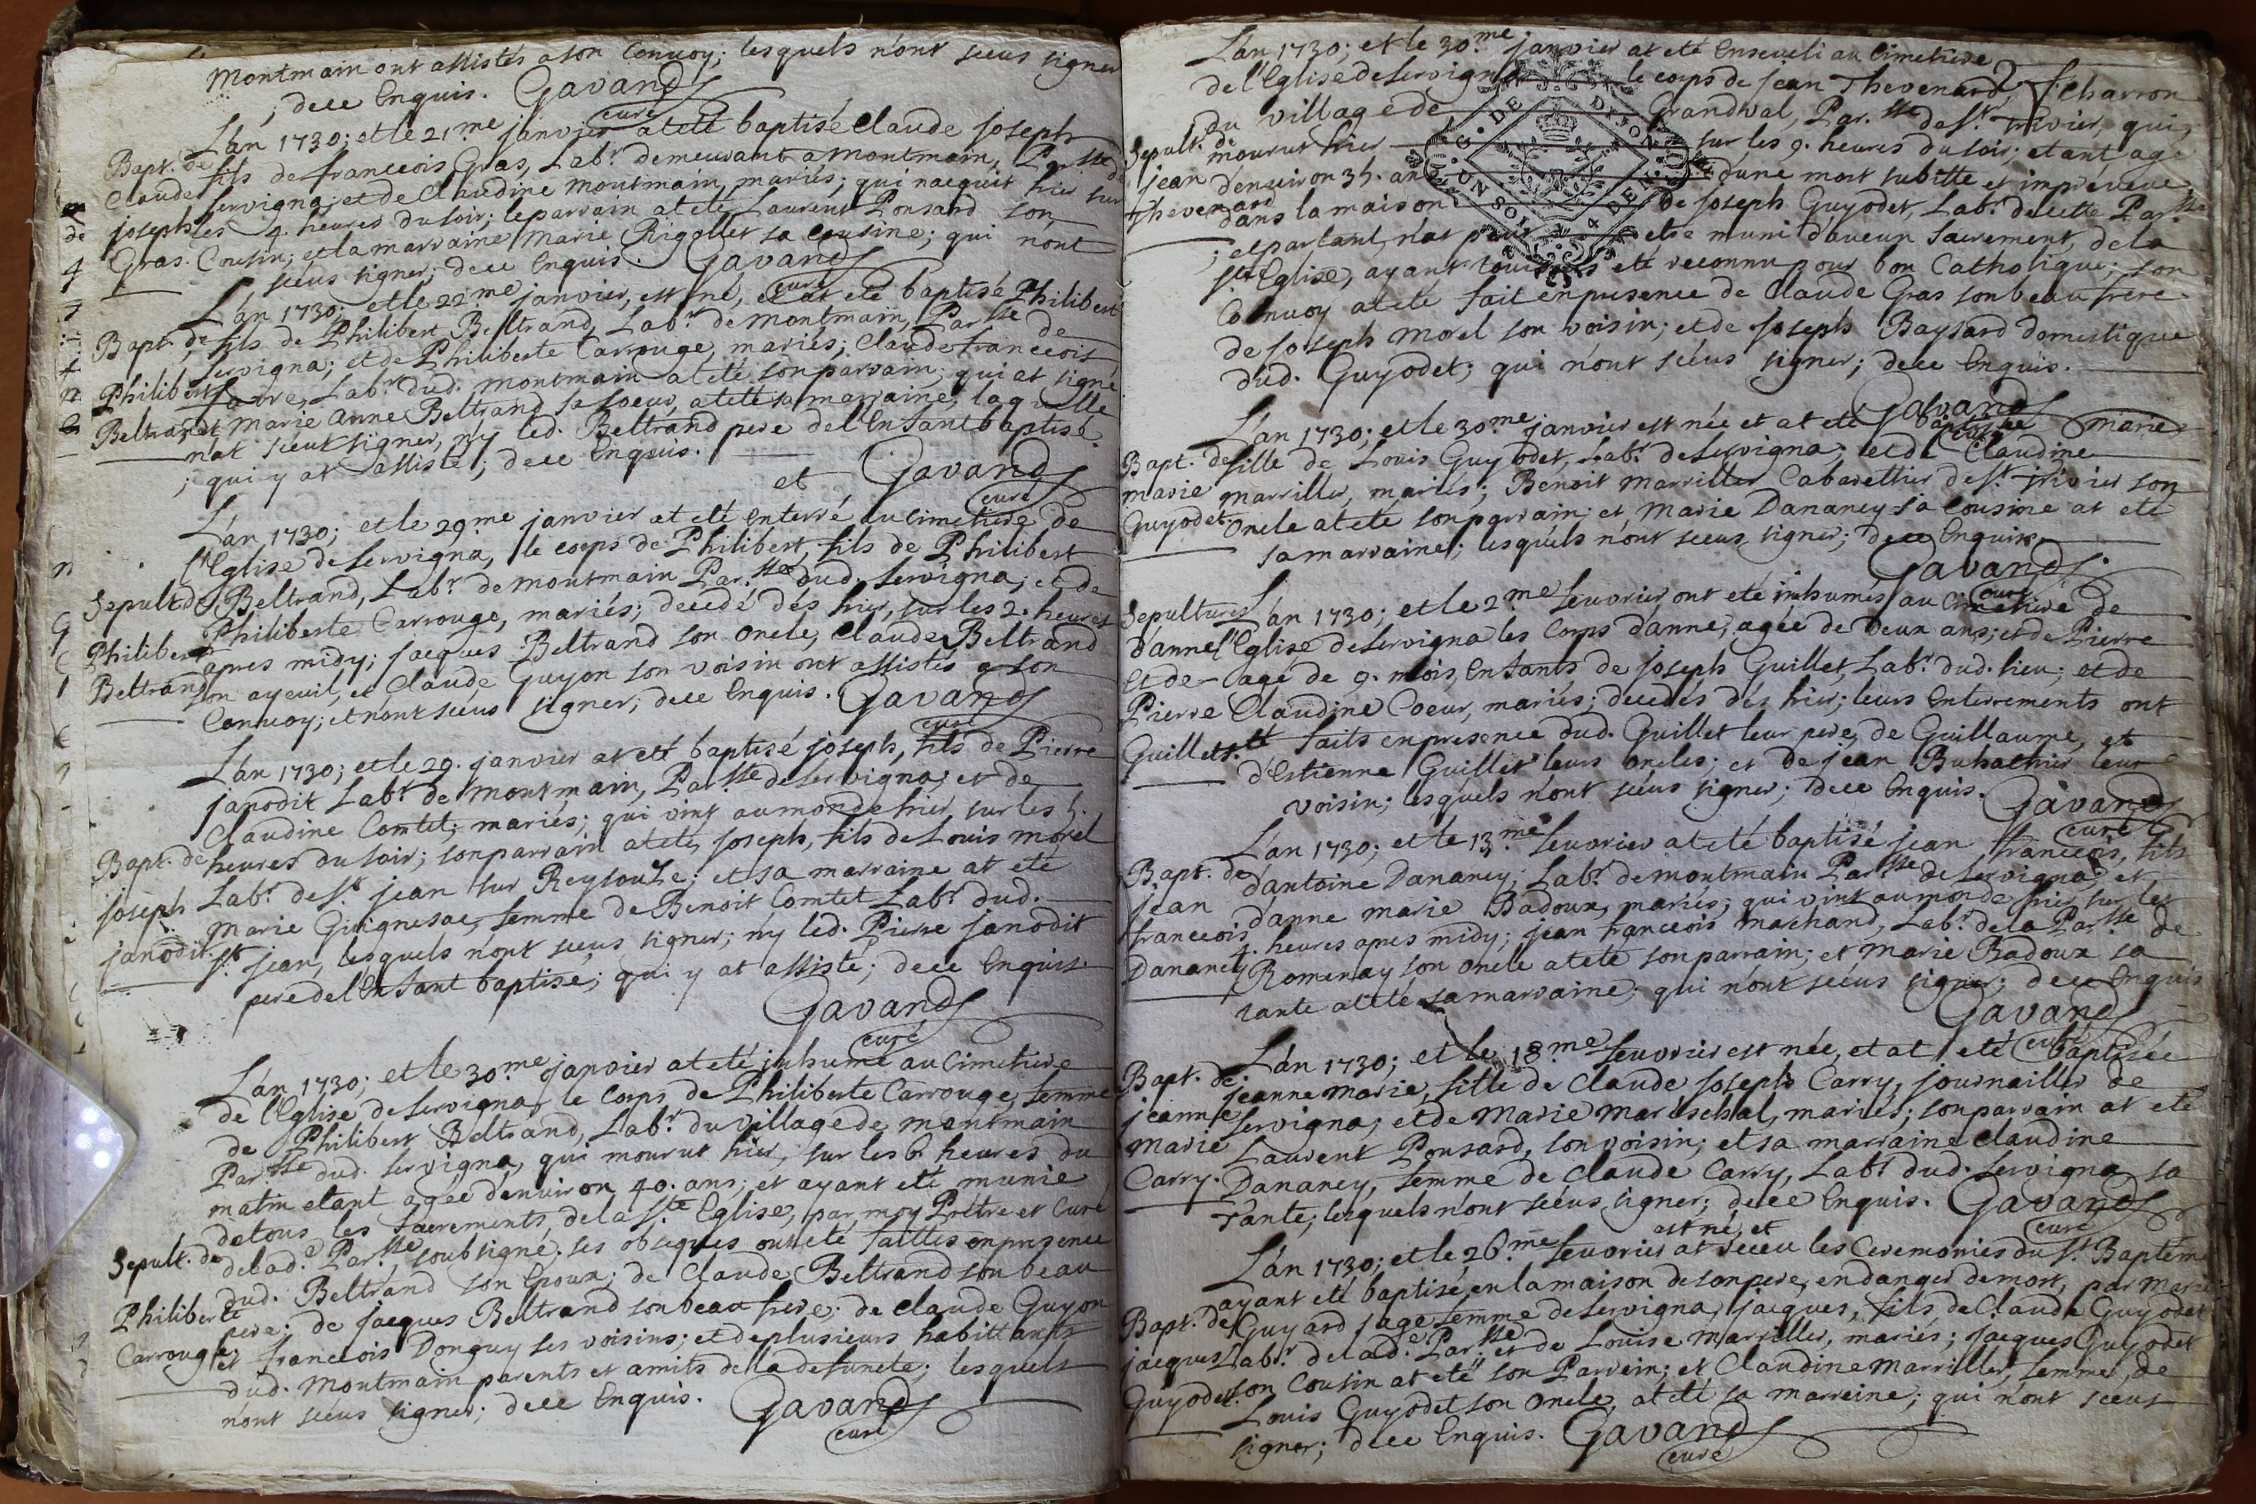 Montmain ont assistés a son Convoy; lesquels n'ont sceus signer
; dece Enquis. Gavand
curé
L'an 1730; et le 21.me janvier at eté baptisé Claude joseph
Bapt. de
Claude
joseph
Gras.
fils de françeois Gras, Lab.r demeurant a Montmain, Par.sse de
Servigna; et de Claudine Montmain, mariés; qui nacquit hier sur
les 4. heures du soir; le parrain at eté Laurent Ponsard son
Cousin; et la marraine Marie Rigollet sa Cousine; qui n'ont
sceus signer; dece Enquis. Gavand
curé
L'an 1730; et le 22.me janvier, est né, et at eté baptisé Philibert
Bapt. de
Philibert
Beltrand
fils de Philibert Beltrand, Lab.r de Montmain, Par.sse de
Servigna; et de Philiberte Carrouge, mariés; Claude françeois
favre, Lab.r dud. Montmain at eté son parrain; qui at signé
et Marie Anne Beltrand sa soeur, at eté sa marraine, laquelle
n'at sceut signer, n'y led. Beltrand pere de l'Enfant baptisé
; qui y at assisté; dece Enquis.
et Gavand
curé
L'an 1730; et le 29.me janvier at eté Enterré au Cimetiere de
l'Eglise de Servigna, le corps de Philibert, fils de Philibert
Sepult. de
Philibert
Beltrand
Beltrand, Lab.r de Montmain Par.sse dud. Servigna; et de
Philiberte Carrouge, mariés; decedé dés hier, sur les 2. heures
apres midy; jacques Beltrand son Oncle, Claude Beltrand
son ayeuil, et Claude Guyon son voisin ont assistés a son
Convoy; et n'ont sceus signer; dece Enquis. Gavand
curé
L'an 1730; et le 29. janvier at eté baptisé joseph, fils de Pierre
janodit Lab.r de Montmain, Par.sse de Servigna; et de
Claudine Comtet; mariés; qui vint au monde hier sur les 5.
Bapt. de
joseph
janodit
heures du soir; son parrain at eté, joseph, fils de Louis Morel
Lab.r de S.t jean sur Reysouze; et sa marraine at eté
Marie Guignesac, femme de Benoit Comtet Lab.r dud.
S.t jean, lesquels n'ont sceus signer; n'y led. Pierre janodit
pere de l'Enfant baptisé; qui y at assisté; dece Enquis
Gavand
curé
L'an 1730; et le 30.me janvier at eté inhumé au Cimetiere
de l'Eglise de Servigna, le Corps de Philiberte Carrouge, femme
de Philibert Beltrand, Lab.r du village de Montmain
Par.sse dud. Servigna, qui mourut hier, sur les 6 heures du
matin etant agée d'environ 40. ans; et ayant eté munie
de tous les Sacrements, de la S.te Eglise, par moy Prêtre et Curé
Sepult. de
Philiberte
Carrouge
de lad.e Par.sse, soubsigné. ses obseques ont eté faittes en presence
dud. Beltrand son Epoux; de Claude Beltrand son beau
pere; de jacques Beltrand son beau frere; de Claude Guyon
et françeois Donguy ses voisins; et de plusieurs habittants
dud. Montmain parents et amits de la defuncte; lesquels
n'ont sceus signer; dece Enquis. Gavand
curé
L'an 1730; et le 30.me janvier at eté Enseveli au Cimetiere
de l'Eglise de Servigna le corps de jean Thevenard, Charron
du village de Grandval, Par.sse de S.t Trivier, qui
Sepult. de
jean
Thevenard
mourut hier sur les 9. heures du soir; etant agé
d'environ 35. ans d'une mort subitte et impreveue
dans la maison de joseph Guyodet, Lab.r de cette Par.sse
; et partant, n'at peut etre muni d'aucun Sacrement, de la
S.te Eglise, ayant toujours eté reconnu pour bon Catholique; son
Convoy at eté fait en presence de Claude Gras son beau frere
de joseph Morel son voisin; et de joseph Baysard domestique
dud. Guyodet; qui n'ont sceus signer; dece Enquis.
Gavand
curé
G. DE DIJON
UN SOL 4 DEN
L'an 1730; et le 30.me janvier est née et at eté baptisée Marie
Bapt. de
Marie
Guyodet
fille de Louis Guyodet, Lab.r de Servigna; et de Claudine
Marriller, mariés; Benoit Marriller Cabarettier de S.t Trivier son
Oncle at eté son parrain; et Marie Dananey sa Cousine at eté
sa marraine; lesquels n'ont sceus signer; dece Enquis.
Gavand
curé
Sepultures
d'anne
et de
Pierre
Guillet
L'an 1730; et le 2.me fevrier ont eté inhumés au Cimetiere de
l'Eglise de Servigna les Corps d'anne, agée de deux ans; et de Pierre
agé de 9. mois, Enfants de joseph Guillet, Lab.r dud. lieu; et de
Claudine Coeur, mariés; decedés dés hier; leurs Enterrements ont
eté faits en presence dud. Guillet leur pere, de Guillaume, et
d'Estienne Guillet leurs oncles; et de jean Buhathier leur
voisin; lesquels n'ont sceus signer; dece Enquis.
Gavand
curé
L'an 1730; et le 13.me fevrier at eté baptisé jean françeois, fils
Bapt. de
jean
françeois
Dananey
d'antoine Dananey, Lab.r de Montmain Par.sse de Servigna, et
d'anne Marie Badoux, mariés; qui vint au monde hier, sur les
4. heures apres midy; jean françeois Marchand, Lab.r de la Par.sse de
Romenay son Oncle at eté son parrain; et Marie Badoux sa
tante at eté sa marraine; qui n'ont sceus signer; dece Enquis
Gavand
curé
L'an 1730; et le 18.me fevrier est née, et at eté baptisée
Bapt. de
jeanne
Marie
Carry.
jeanne Marie, fille de Claude joseph Carry, journailler de
Servigna; et de Marie Mareschal, mariés; son parrain at eté
Laurent Ponsard, son voisin; et sa marraine Claudine
Dananey, femme de Claude Carry, Lab.r dud. Servigna sa
Tante; lesquels n'ont sceus signer; dece Enquis. Gavand
curé
est né, et
L'an 1730; et le 26.me fevrier at receu les Ceremonies du S.t Baptême
ayant eté baptisé, en la maison de son pere, en danger de mort, par Marie
Bapt. de
jacques
Guyodet
Guyard sage femme de Servigna, jacques, fils de Claude Guyodet
Lab.r de lad.e Par.sse et de Louise Marriller, mariés; jacques Guyodet
son Cousin at eté son Parrein; et Claudine Marriller, femme de
Louis Guyodet son Oncle, at eté sa marreine; qui n'ont sceus
signer; dece Enquis. Gavand
curé